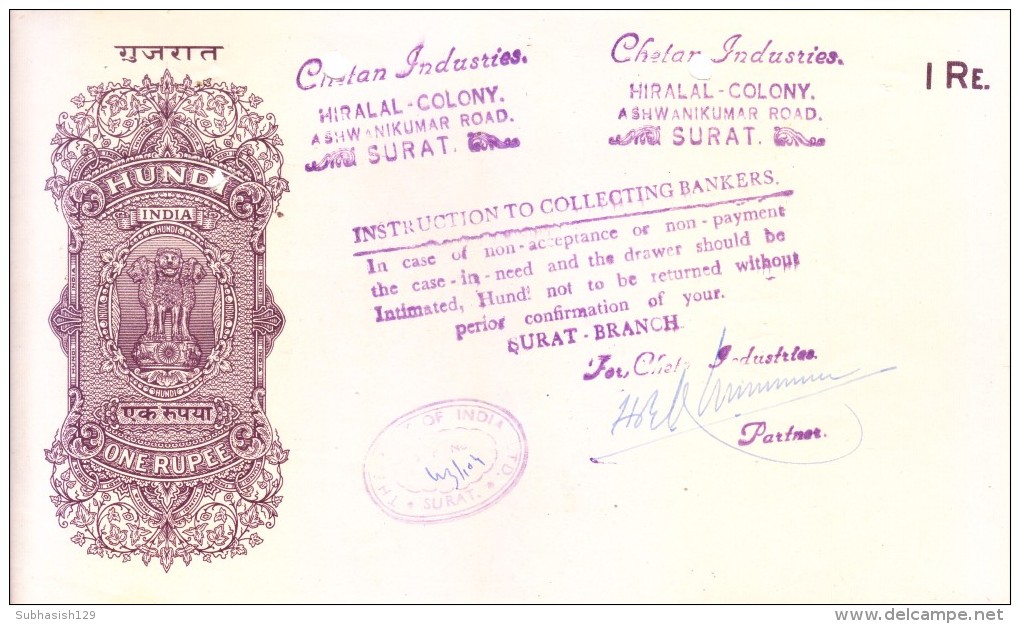 ગુજરાત
HUNDI
INDIA
HUNDI
INDIA
HUNDI
HUNDI
एक रुपया
ONE RUPEE
Chetan Industries.
HIRALAL-COLONY.
ASHWANIKUMAR ROAD.
SURAT.
Chetan Industries.
HIRALAL-COLONY.
ASHWANIKUMAR ROAD.
SURAT.
1 RE.
INSTRUCTION TO COLLECTING BANKERS.
In case of non-acceptance or non-payment
the case-in-need and the drawer should be
Intimated, Hundi not to be returned without
perior confirmation of your.
SURAT-BRANCH
For, Chetan Industries.
Partner.
THE OF INDIA LTD.
No
SURAT.
Subhasish129
www.delcampe.net